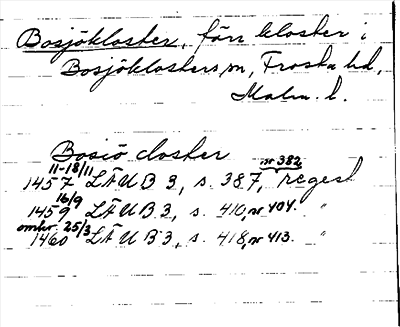 Bosjökloster, förr kloster i
Bosjöklosters sn, Frosta hd,
Malm. l.
Bosiö closter
11-18/11 1457 LÄUB 3, s. 387, nr 382, regest
16/9 1459 LÄUB 3, s. 410, nr 404. "
omkr 25/3 1460 LÄUB 3, s. 418, nr 413. "